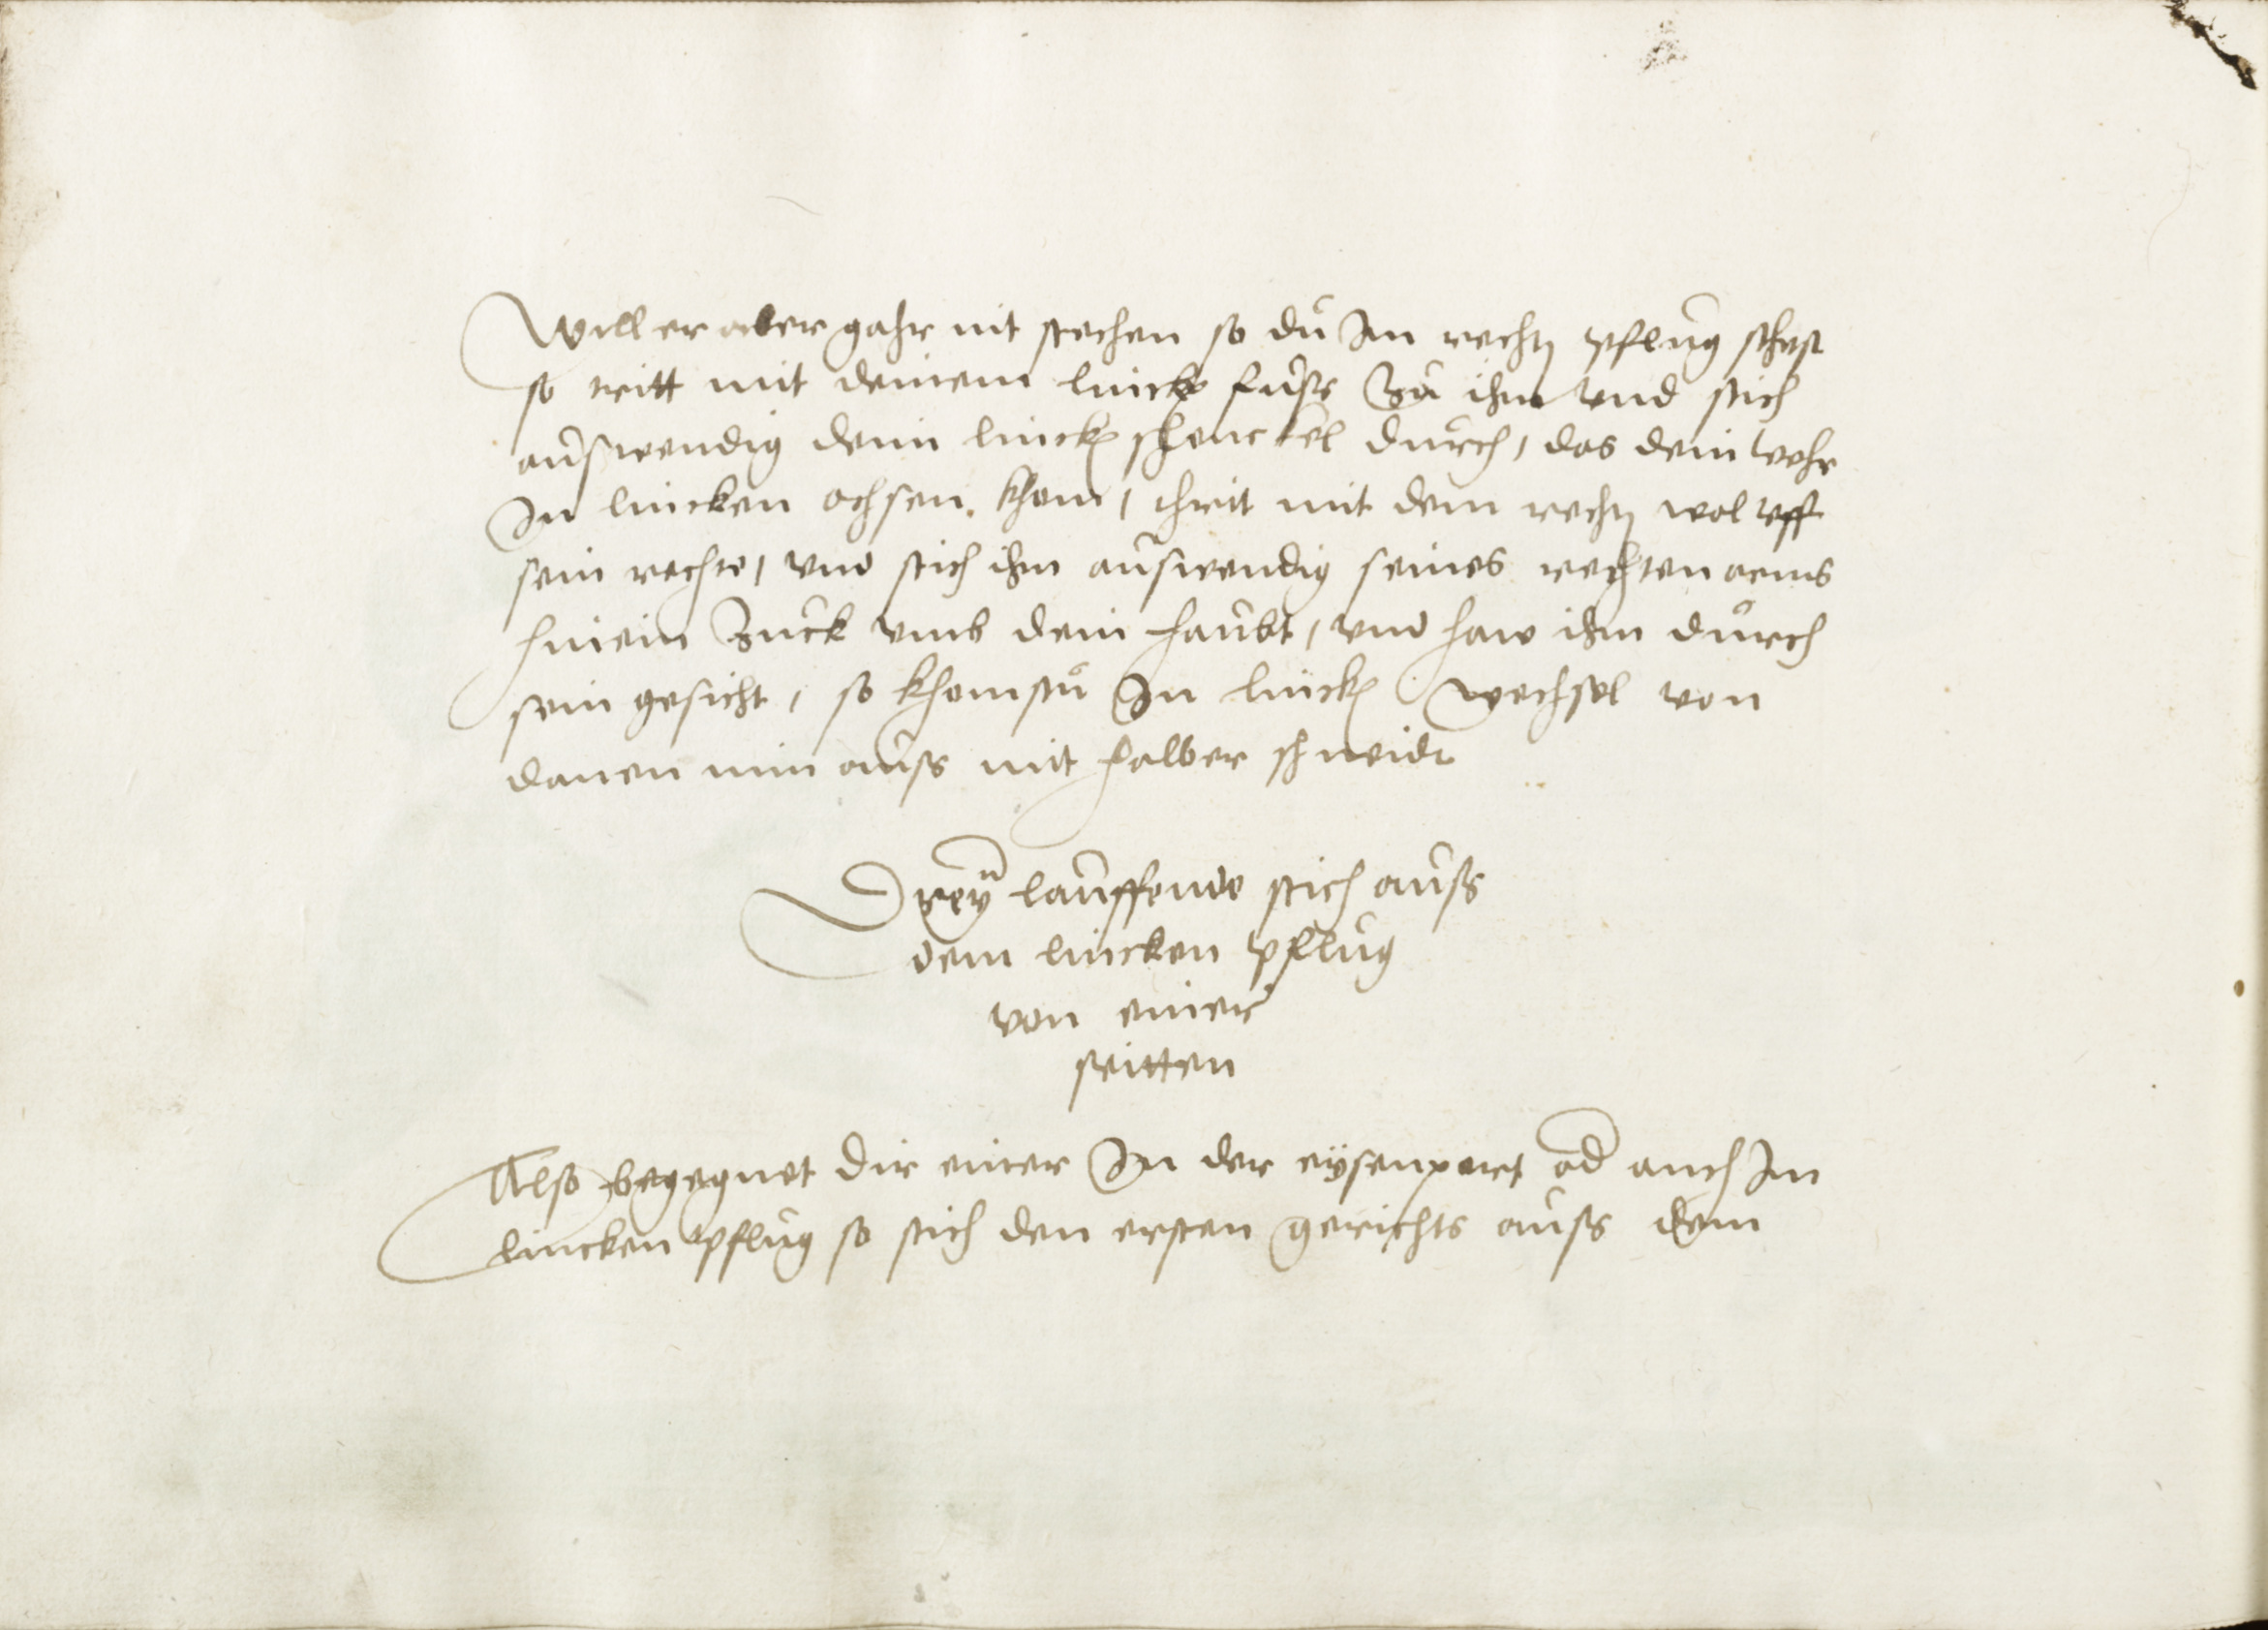 Will er aber gahr nit stechen so du Im rechtn pflug stehest
so tritt mit deinem lincken fuss Zu ihm vnd stich
auswendig dein lincken schenckel durch, das dein wehr
In lincken ochsen khom, thritt mit dem rechtn wol vff
sein rechte, vnd stich ihm auswendig seines rechten arms
hinein Zuck vmb dein haubt, vnd haw ihm durch
sein gesicht, so khomstu In lincken wechsel von
danen nim auss mit halber schneidt
Dreÿ lauffende stich auss
dem lincken pflug
von einer
seitten
Also begegnet dir einer In der eÿsenport od auch Im
lincken pflug so stich den ersten gerichts auss dem